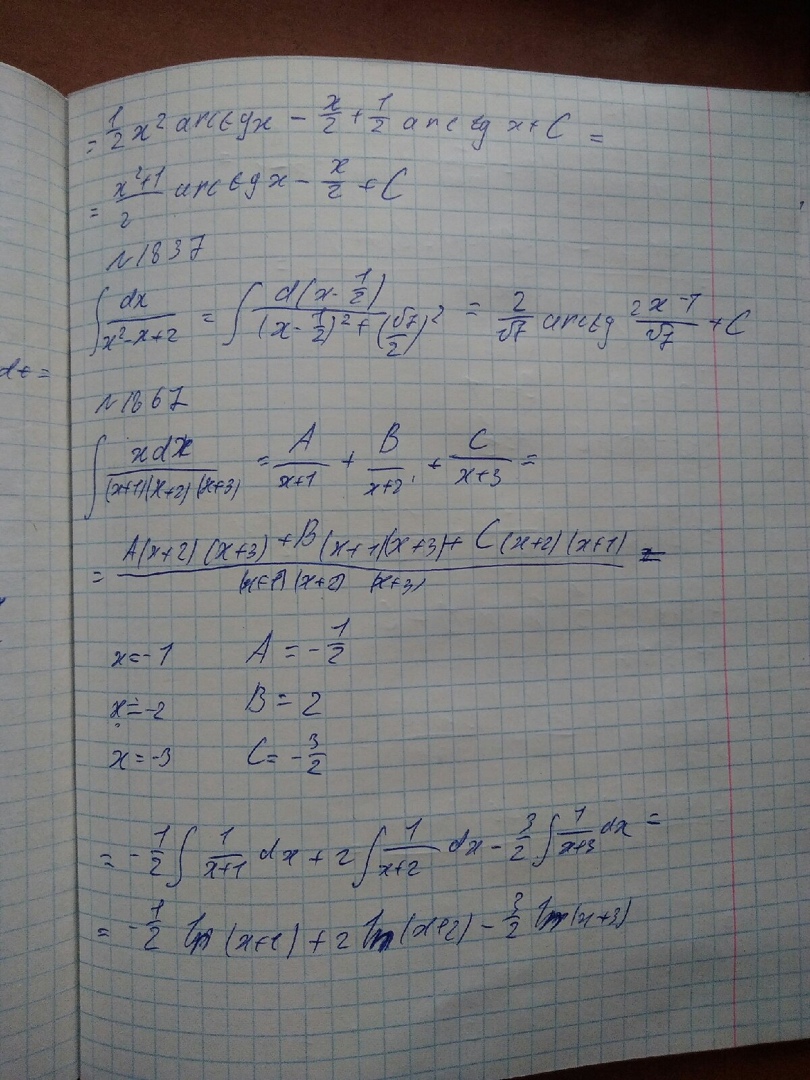 = 1/2 x² arctg x − x/2 + 1/2 arctg x + C =
= (x²+1)/2 arctg x − x/2 + C
№1837
∫ dx/(x²−x+2) = ∫ d(x−1/2)/((x−1/2)²+(√7/2)²) = 2/√7 arctg (2x−1)/√7 + C
dt =
№1867
∫ xdx/((x+1)(x+2)(x+3)) = A/(x+1) + B/(x+2) + C/(x+3) =
= (A(x+2)(x+3)+B(x+1)(x+3)+C(x+2)(x+1))/((x+1)(x+2)(x+3)) =
x=-1 A = -1/2
x=-2 B = 2
x=-3 C = -3/2
= -1/2 ∫ 1/(x+1) dx + 2 ∫ 1/(x+2) dx − 3/2 ∫ 1/(x+3) dx =
= -1/2 ln(x+1) + 2 ln(x+2) − 3/2 ln(x+3)